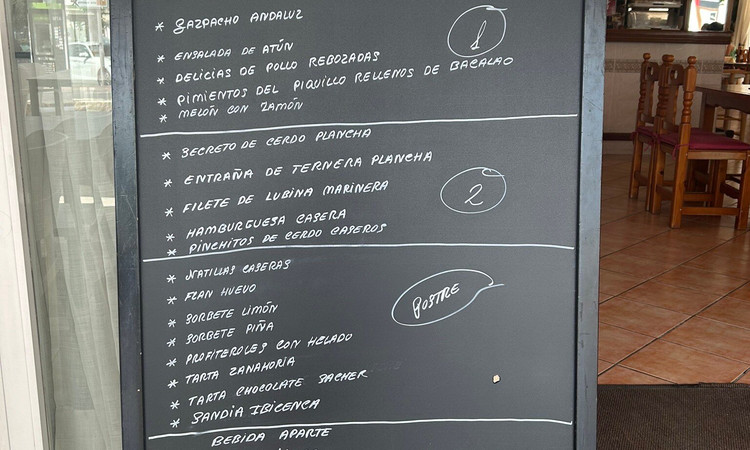 * GAZPACHO ANDALUZ
1
* ENSALADA DE ATÚN
* DELICIAS DE POLLO REBOZADAS
* PIMIENTOS DEL PIQUILLO RELLENOS DE BACALAO
* MELÓN CON JAMÓN
* SECRETO DE CERDO PLANCHA
* ENTRAÑA DE TERNERA PLANCHA
* FILETE DE LUBINA MARINERA
2
* HAMBURGUESA CASERA
* PINCHITOS DE CERDO CASEROS
* NATILLAS CASERAS
* FLAN HUEVO
POSTRE
* SORBETE LIMÓN
* SORBETE PIÑA
* PROFITEROLES CON HELADO
* TARTA ZANAHORIA
* TARTA CHOCOLATE SACHER
* SANDIA IBICENCA
BEBIDA APARTE